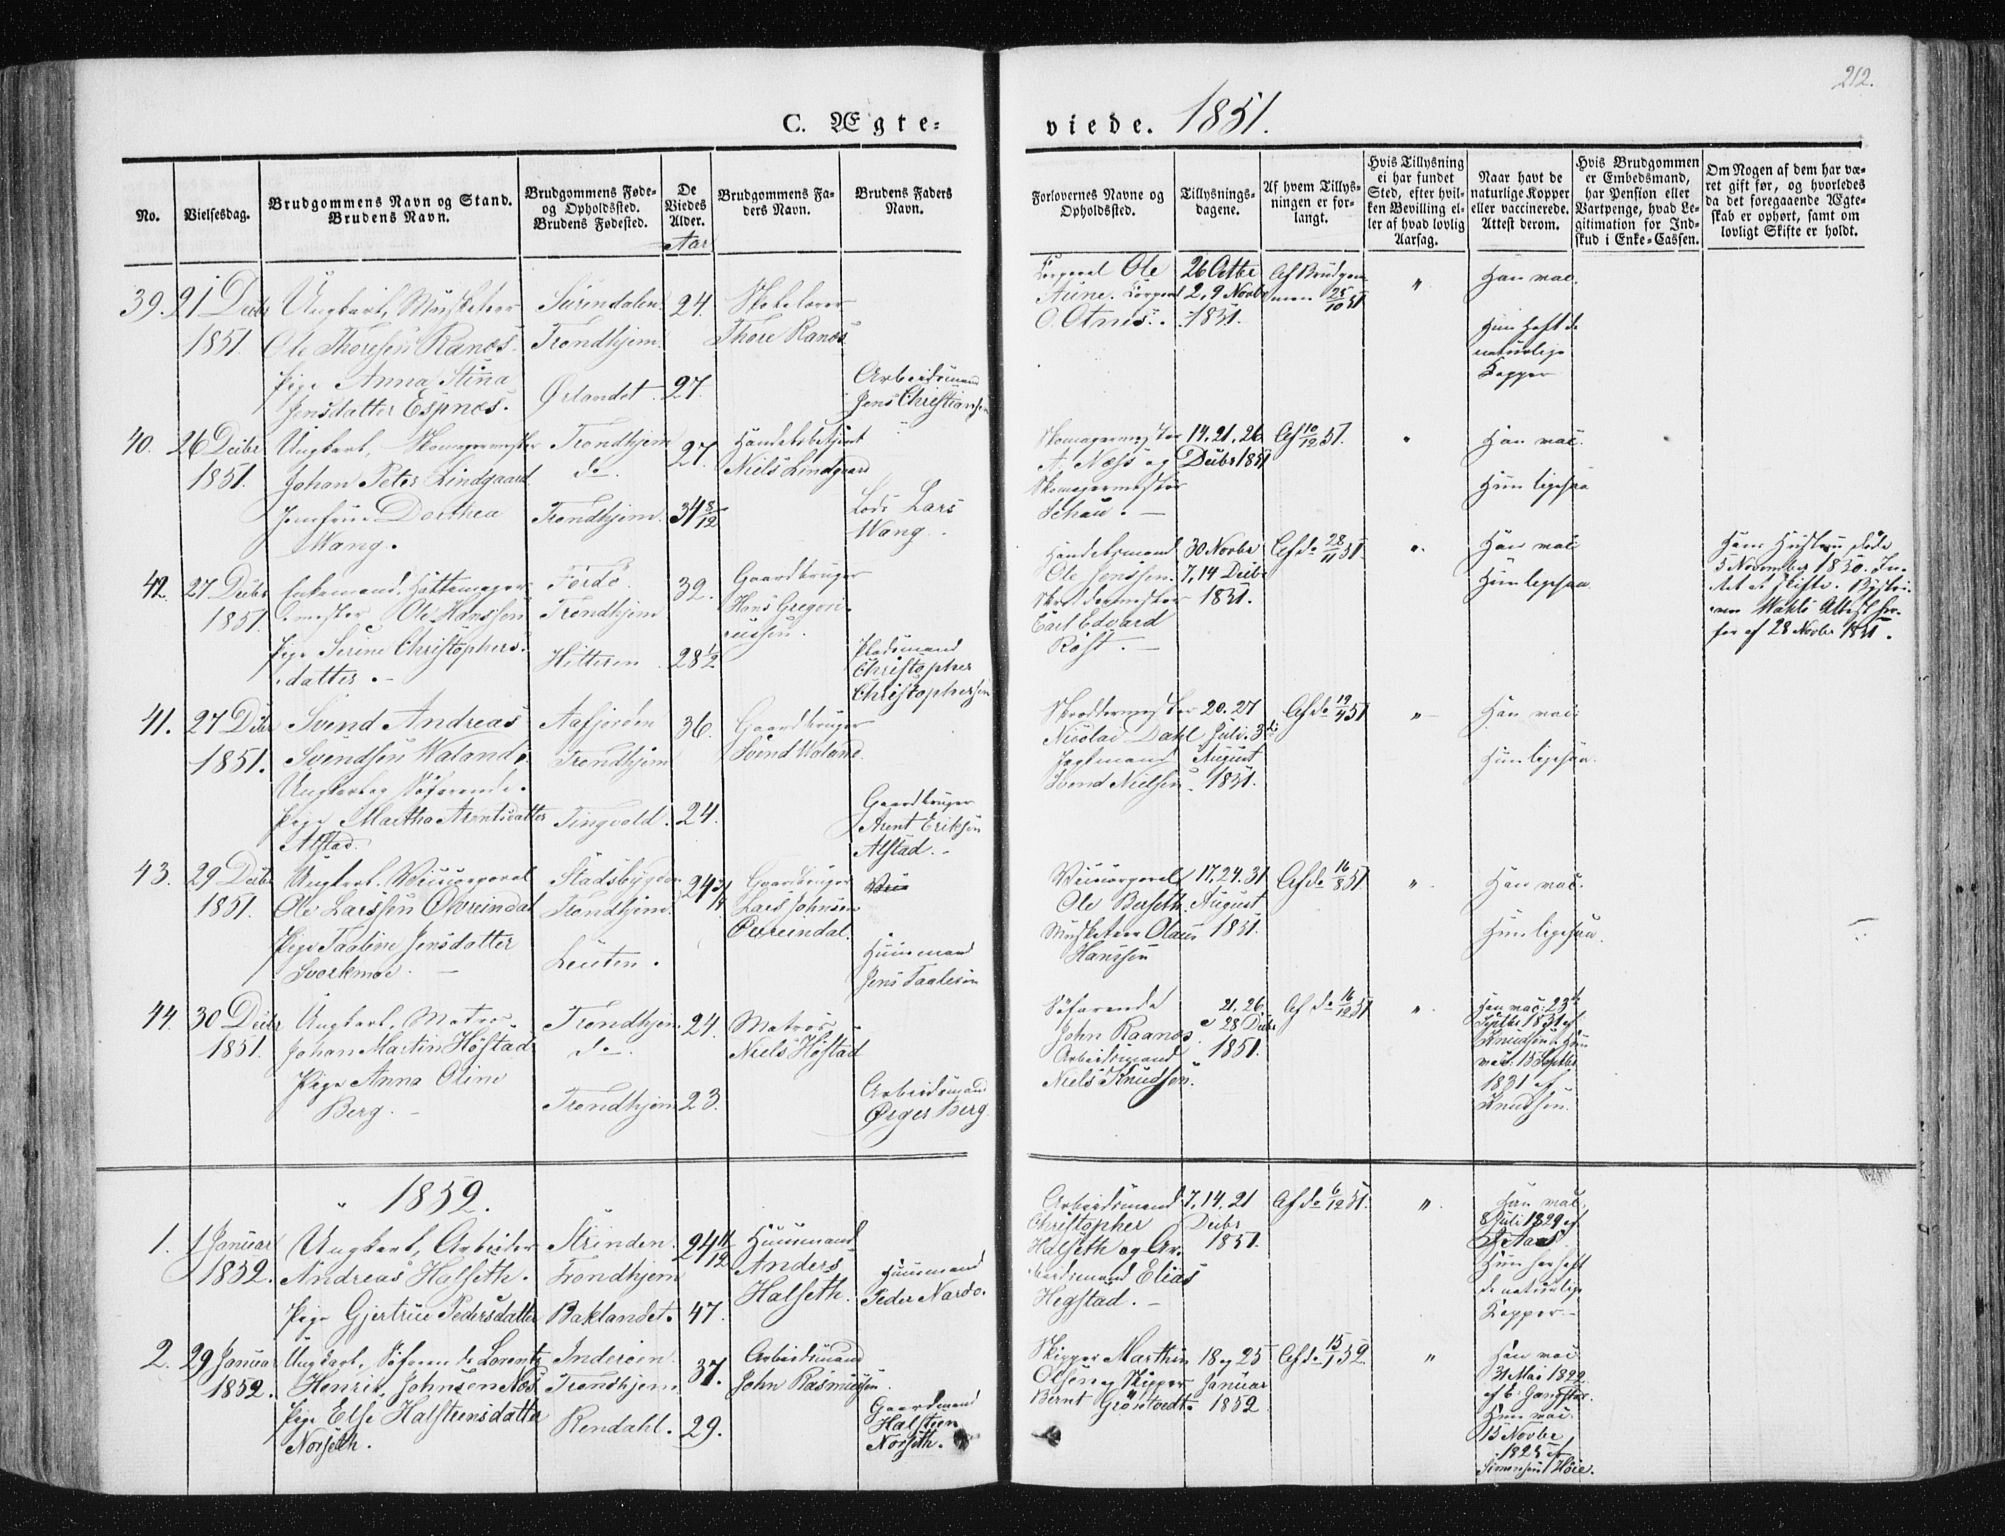 212.
C. Ægte=
viede. 1851.
No.
Vielsesdag.
Brudgommens Navn og Stand.
Brudens Navn.
Brudgommens Føde-
og Opholdssted.
Brudens Fødested.
De
Viedes
Alder.
Aar
Brudgommens Fa-
ders Navn.
Brudens Faders
Navn.
Forlovernes Navne og
Opholdssted.
Tillysnings-
dagene.
Af hvem Tillys-
ningen er for-
langt.
Hvis Tillysning
ei har fundet
Sted, efter hvil-
ken Bevilling el-
ler af hvad lovlig
Aarsag.
Naar havt de
naturlige Kopper
eller vaccinerede.
Attest derom.
Hvis Brudgommen
er Embedsmand,
har Pension eller
Vartpenge, hvad Le-
gitimation for Ind-
skud i Enke=Cassen.
Om Nogen af dem har væ-
ret gift før, og hvorledes
da det foregaaende Ægte-
skab er ophørt, samt om
lovligt Skifte er holdt.
39.
21 Decbr
1851.
Ungkarl, Musketeer
Ole Thoresen Ranes.
Pige Anna Stina
Jensdatter Espnes.
Surendalen
Trondhjem.
Ørlandet.
24.
27.
Thore Ranes
Arbeidsmand
Jens Christiansen
Corporal Ole
Aune. Corporal
O. Otnes.
26 Octbr
2, 9 Novbr
1851.
Af Brudgom-
men 25/10 51
"
Han vac.
Hun haft de
naturlige
Kopper
40.
26 Decbr
1851.
Ungkarl, Skomagermester
Johan Peter Lindgaard
Jomfrue Dorthea
Wang.
Trondhjem
do.
Trondhjem.
27.
34 8/12
Handelsbetjent
Niels Lindgaard
Lods Lars
Wang.
Skomagermester
A. Næss og
Skomagermester
Schau.
14, 21, 26
Decbr 1851
Af 10/12 51.
"
Han vac.
Hun ligesaa
42.
27 Decbr
1851.
Enkemand, Hattemager-
mester Ole Hanssen
Pige Serine Christophers-
datter.
Førde.
Trondhjem
Hitteren
39.
28 1/2
Gaardbruger
Hans Gregori-
ussen.
Pladsmand
Christopher
Christophersen
Handelsmand
Ole Jenssen.
Skræddermester
Carl Edvard
Røst.
30 Novbr
7, 14 Decbr
1851.
Af do 28/11 51.
"
Han vac
Hun ligesaa
Hans Hustru døde
5 November 1850. In-
tet at skifte.
af 28 Novbr 1851.
41.
27 Decbr
1851.
Svend Andreas
Svendsen Waland,
Ungkarl og Søfarende.
Pige Martha Arentsdatter
Alstad.
Aafjorden
Trondhjem
Tingvold.
36.
24.
Gaardbruger
Svend Woland.
Gaardbruger
Arent Eriksen
Alstad.
Skræddermester
Nicolai Dahl
Jagtmand
Svend Nielsen
20. 27
Juli. 3di
August
1851.
Af do 19/4 51
"
Han vac.
Hun ligesaa.
43.
29 Decbr
1851.
Ungkarl, Vicecorporal
Ole Larssen Øvreindal
Pige Taaline Jensdatter
Svorkmoe.
Stadsbygden
Trondhjem.
Leuten.
24 3/4
Gaardbruger
Lars Johnsen
Øvreindal.
Huusmand
Jens Taalesen
Vicecorporal
Ole Berseth.
Musketeer Olaus
Hanssen
17, 24. 31
August
1851.
Af do 16/8 51
"
Han vac.
Hun ligesaa.
44.
30 Decbr
1851.
Ungkarl, Matros
Johan Martin Høstad
Pige Anna Oline
Berg.
Trondhjem.
do.
Trondhjem
24
23.
Matros
Niels Høstad
Arbeidsmand
Ørger Berg
Søfarende
John Raanes.
Arbeidsmand
Niels Knudsen.
21, 26
28 Decbr
1851.
Af do 16/12 51
"
Han vac. 23de
Septbr 1831 af
Knudsen. Hun
vac. 15 Septbr
1831 af
Knudsen.
1852.
1.
1 Januar
1852.
Ungkarl, Arbeider
Andreas Halseth.
Pige Gjertrue Pedersdatter
Strinden.
Trondhjem
Baklandet.
24 11/12
47.
Huusmand
Anders
Halseth.
Huusmand
Peder Nardo.
Arbeidsmand
Christopher
Halseth og Ar-
beidsmand Elias
Hegstad.
7, 14. 21
Decbr
1851.
Af do 6/12 51.
"
Han vac.
8 Juli 1829 af
Hun har haft
de naturlige
Kopper.
2.
29 Januar
1852.
Ungkarl, Søfarende Lorentz
Henrik Johnsen Næs
Pige Else Halsteensdatter
Norseth.
Inderøen.
Trondhjem
Rendahl.
37.
29.
Arbeidsmand
John Rasmussen
Gaardmand
Halsteen
Norseth.
Skipper Marthin
Olsen og Skipper
Bernt Grøntvedt.
18 og 25
Januar
1852
Af do 15/1 52
"
Han vac.
31 Mai 1822
Hun vac.
15 Novbr
1825 af
Simonsen Høie.